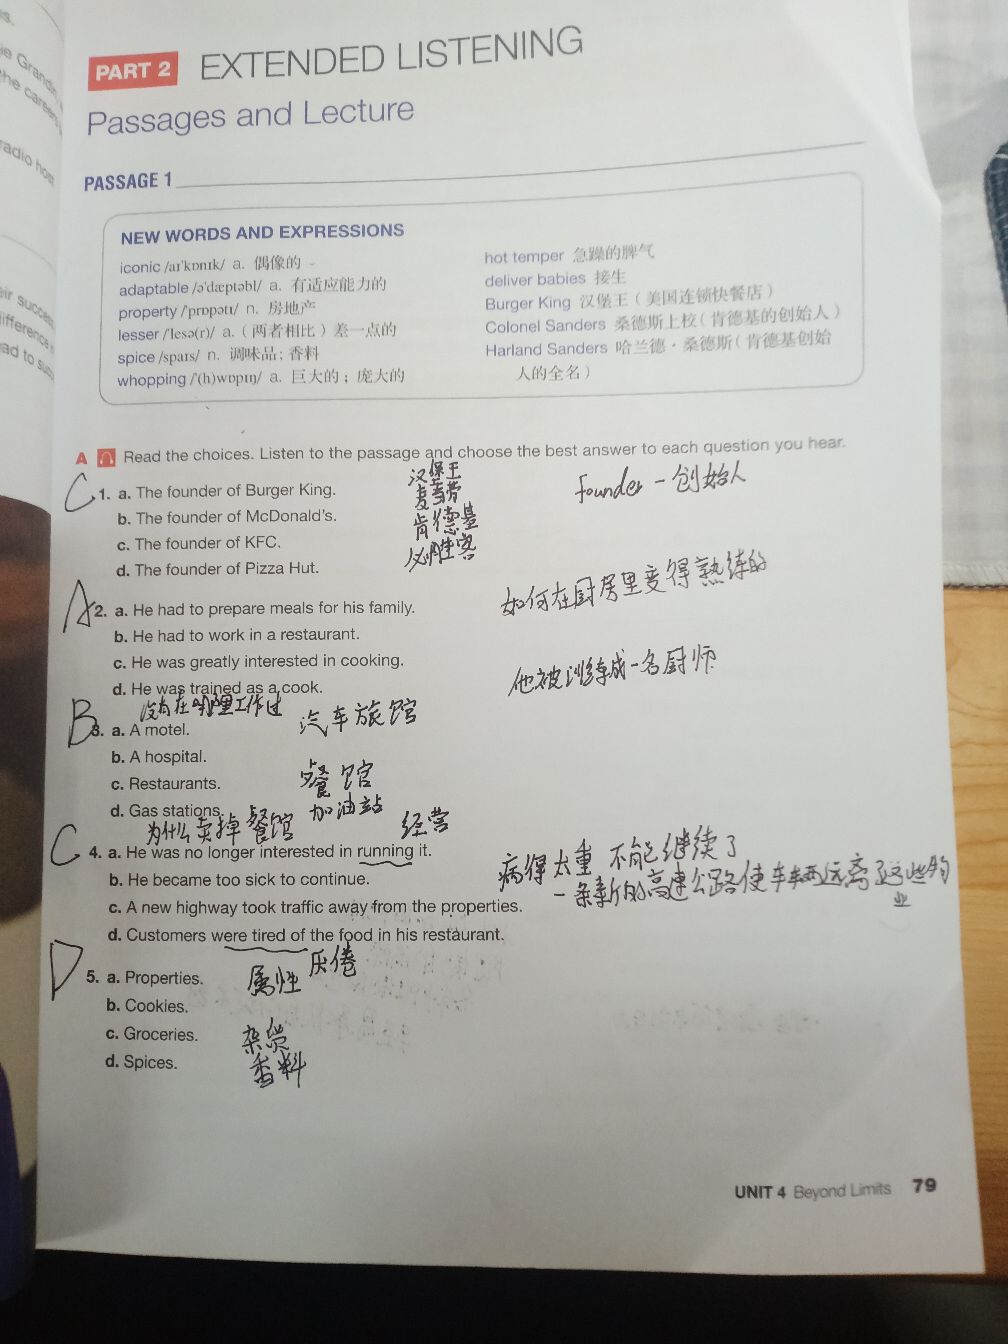 s.
ie Grandin,
the careers
radio host
eir success
difference
ad to succ
PART 2 EXTENDED LISTENING
Passages and Lecture
PASSAGE 1
NEW WORDS AND EXPRESSIONS
iconic /aɪˈkɒnɪk/ a. 偶像的
adaptable /əˈdæptəbl/ a. 有适应能力的
property /ˈprɒpətɪ/ n. 房地产
lesser /ˈlesə(r)/ a.（两者相比）差一点的
spice /spaɪs/ n. 调味品；香料
whopping /ˈ(h)wɒpɪŋ/ a. 巨大的；庞大的
hot temper 急躁的脾气
deliver babies 接生
Burger King 汉堡王（美国连锁快餐店）
Colonel Sanders 桑德斯上校（肯德基的创始人）
Harland Sanders 哈兰德·桑德斯（肯德基创始
人的全名）
A Read the choices. Listen to the passage and choose the best answer to each question you hear.
C 1. a. The founder of Burger King. 汉保王
founder - 创始人
b. The founder of McDonald's. 麦当劳
c. The founder of KFC. 肯德基
d. The founder of Pizza Hut. 必胜客
A 2. a. He had to prepare meals for his family. 如何在厨房里变得熟练的
b. He had to work in a restaurant.
c. He was greatly interested in cooking.
d. He was trained as a cook. 他被训练成一名厨师
没有在哪里工作过
B 3. a. A motel. 汽车旅馆
b. A hospital.
c. Restaurants. 餐馆
d. Gas stations. 加油站
为什么卖掉餐馆 经营
C 4. a. He was no longer interested in running it.
b. He became too sick to continue. 病得太重 不能继续了
c. A new highway took traffic away from the properties. 一条新的高速公路使车辆远离了这些物
业
d. Customers were tired of the food in his restaurant.
厌倦
D 5. a. Properties. 属性
b. Cookies.
c. Groceries. 杂货
d. Spices. 香料
UNIT 4 Beyond Limits 79